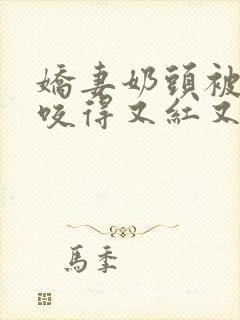 嬌妻奶頭被
咬得又紅又
馬季